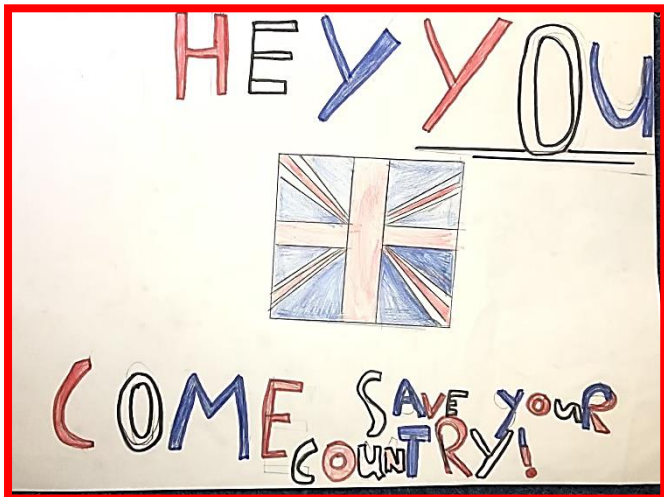 HEY YOU
COME SAVE YOUR
COUNTRY!